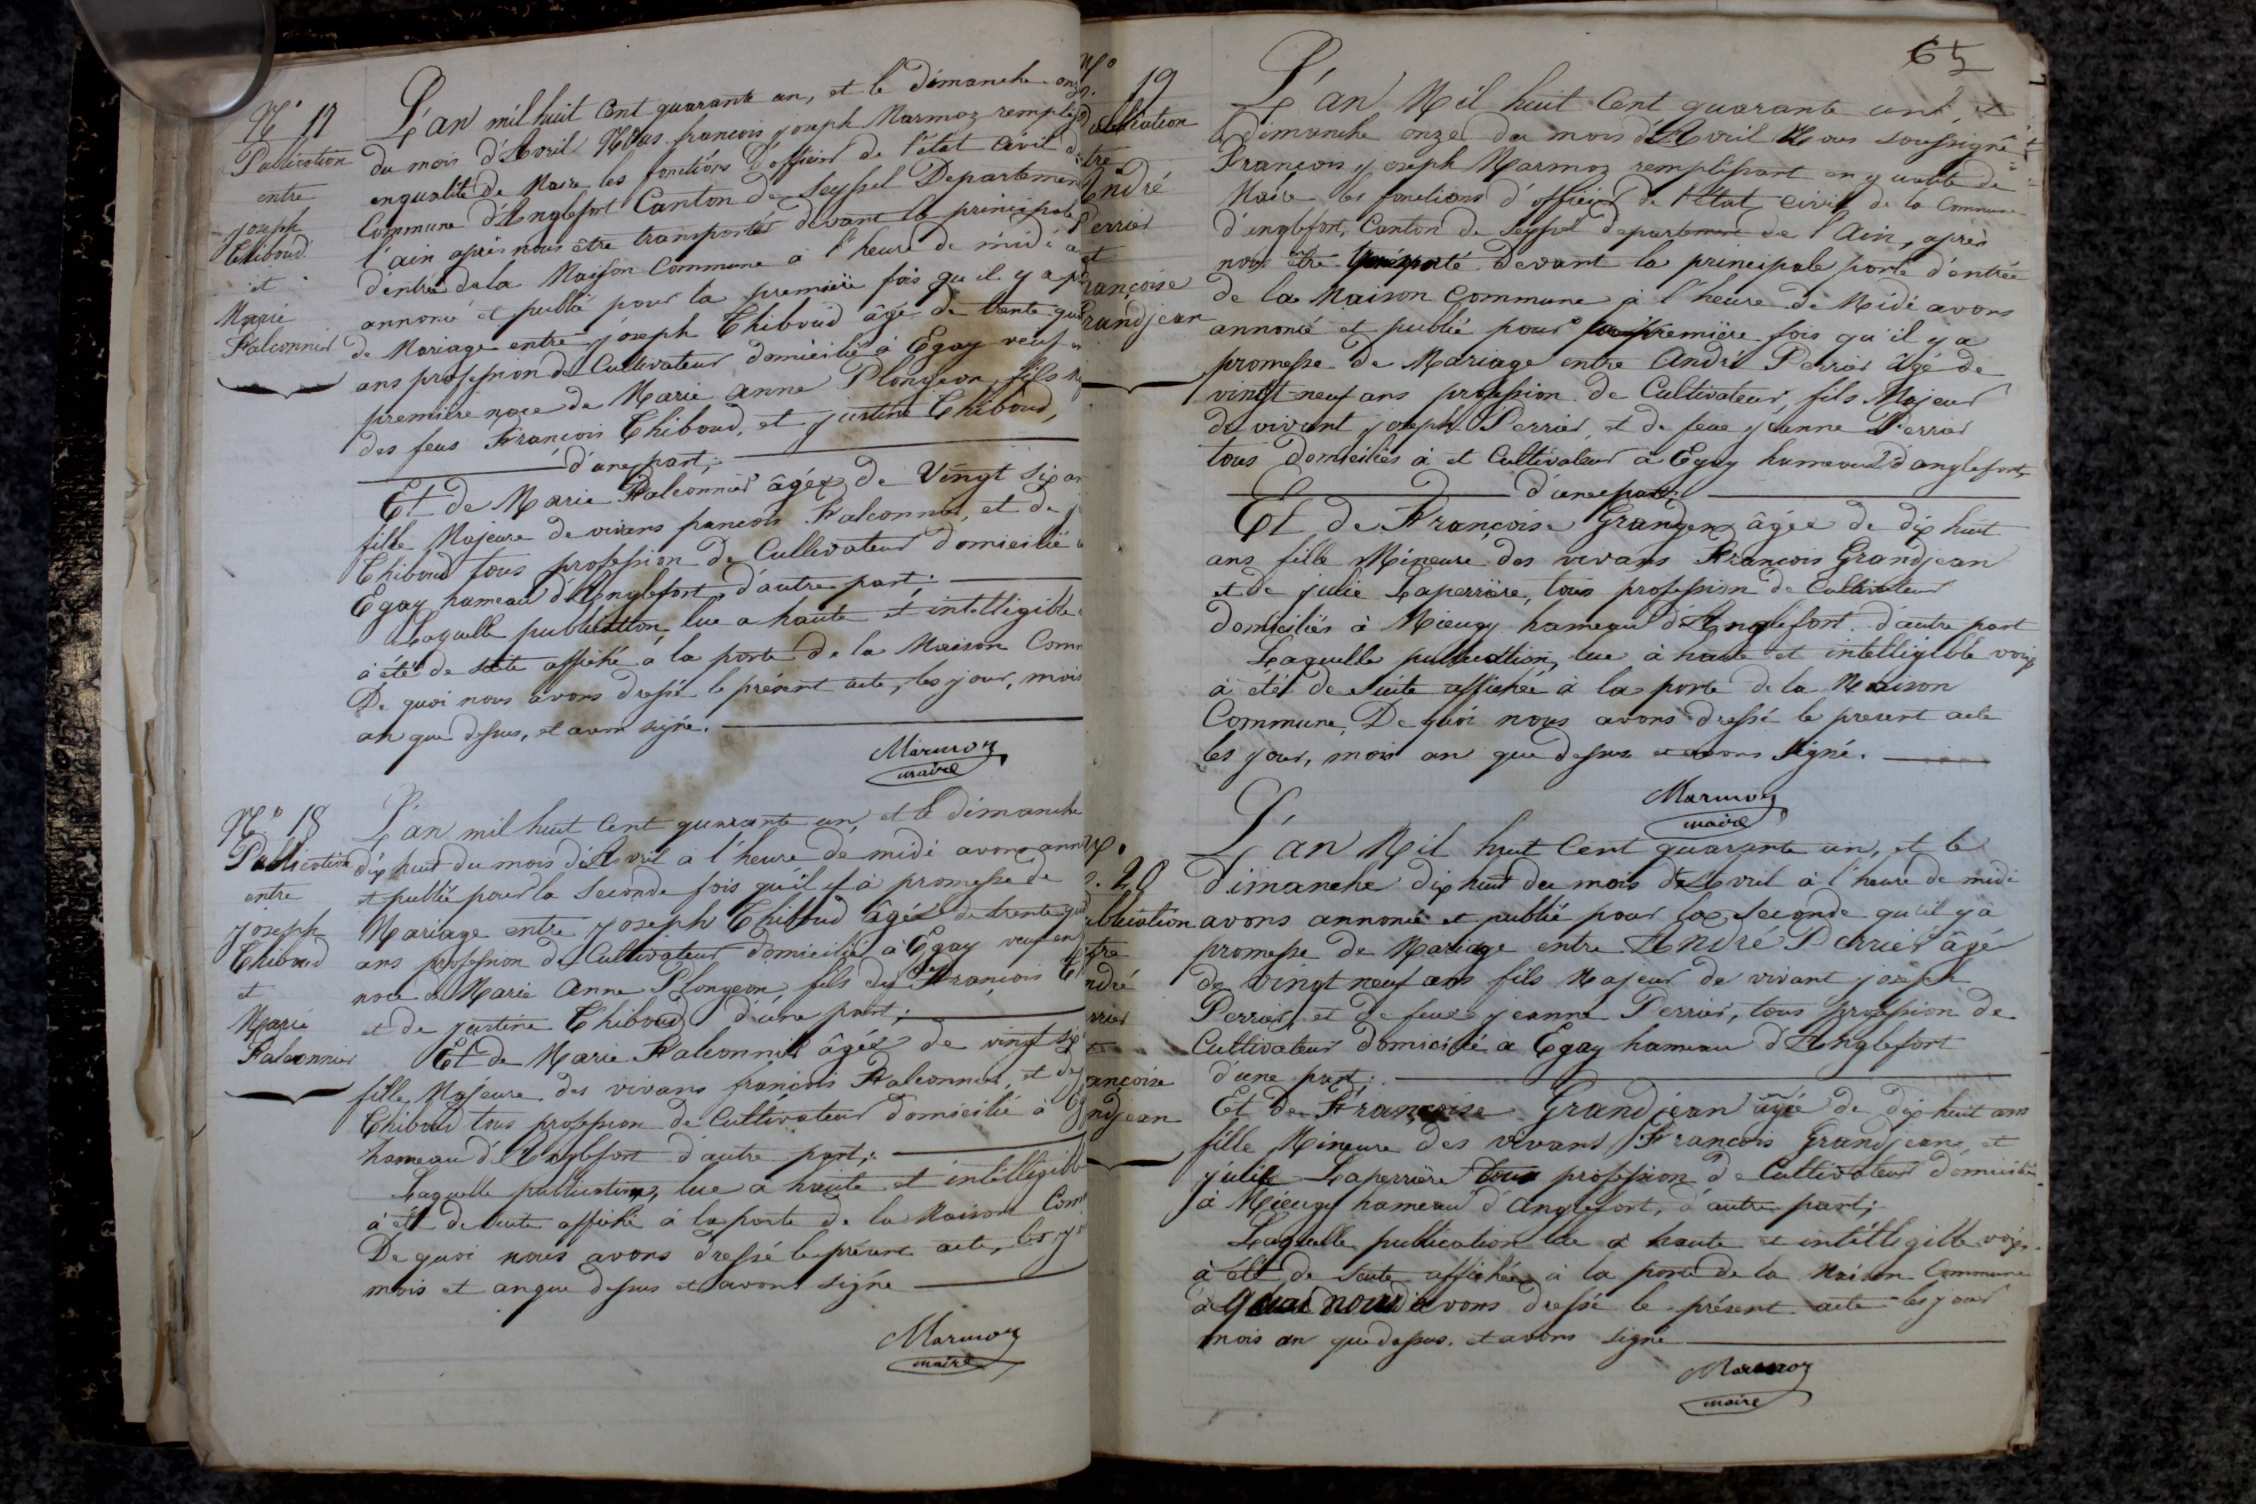 N° 17
Publication
entre
joseph
Thiboud
et
Marie
Falconnier
L'an mil huit cent quarante un, et le dimanche onz
du mois d'Avril Nous françois joseph Marmoz rempliss
enqualité de Maire les fonctions d'officier de l'état civil d
Commune d'Anglefort Canton de Seyssel Departement
l'ain après nous être transportés devant la principale
d'entrée de la Maison Commune à l'heure de midi a
annoncé et publié pour la première fois qu'il y a pr
de Mariage entre joseph Thiboud âgé de trente qua
ans profession de Cultivateur domicilié à Egay veuf e
première noce de Marie anne Plongeon, fils m
des feus François Thiboud, et justine Thiboud,
d'une part;
Et de Marie Falconnier âgée de Vingt six an
fille Majeure de vivans francois Falconnier, et de j
Thiboud tous profession de Cultivateur domicilié à
Egay hameau d'Anglefort, d'autre part;
Laquelle publication, lue a haute et intelligible
à été de suite affiché à la porte de la Maison Comm
De quoi nous avons dressé le présent acte, les jour, mois
an que dessus, et avons signé.
Marmoz
maire
N° 18
Publication
entre
joseph
Thiboud
et
Marie
Falconnier
L'an mil huit cent quarante un, et le dimanche
dix huit du mois d'Avril à l'heure de midi avons ann
et publié pour la seconde fois qu'il y à promesse de
Mariage entre joseph Thiboud âgé de trente qua
ans profession de Cultivateur domicilié à Egay veuf en
noce de Marie Anne Plongeon, fils des François Th
et de justine Thiboud d'une part;
Et de Marie Falconnier âgée de vingt six
fille Majeure des vivans françois Falconnier, et de j
Thiboud tous profession de Cultivateur domicilié à Eg
hameau d'Anglefort d'autre part;
Laquelle publication, lue a haute et intelligible
à été de suite affiché à la porte de la Maison Com
De quoi nous avons dressé le présent acte, les jo
mois et an que dessus et avons signé
Marmoz
maire
65
N°
19
blication
tre
André
Perrier
et
rançoise
randjean
L'an Mil huit Cent quarante un, et
le dimanche onze du mois d'Avril Nous soussigné
François joseph Marmoz remplissant en qualité de
Maire les fonctions d'officier de l'Etat civil de la Commune
d'anglefort, Canton de Seyssel departement de l'Ain, après
nous être transporté devant la principale porte d'entrée
de la Maison Commune à l'heure de Midi avons
annoncé et publié pour la première fois qu'il y a
promesse de Mariage entre André Perrier âgé de
vingt-neuf ans profession de Cultivateur, fils Majeur
de vivant joseph Perrier, et de feue jeanne Perrier
tous domiciliés à et Cultivateur à Egay hameau d'anglefort,
d'une part;
Et de Françoise Grandjean âgée de dix huit
ans fille Mineure des vivans François Grandjean
et de julie Laperrière, tous profession de Cultivateur
domiciliés à Mieugy hameau d'Anglefort d'autre part
Laquelle publication, lue à haute et intelligible voix
à été de suite affichée à la porte de la Maison
Commune, De quoi nous avons dressé le present acte
les jour, mois an que dessus et avons signé.
Marmoz
maire
N°
20
blication
tre
ndré
rrier
et
ançoise
ndjean
L'an Mil huit Cent quarante un, et le
dimanche dix huit du mois d'Avril à l'heure de midi
avons annoncé et publié pour la seconde qu'il y a
promesse de Mariage entre André Perrier âgé
de vingt neuf ans fils Majeur de vivant joseph
Perrier, et de feue jeanne Perrier, tous profession de
Cultivateur domicilié à Egay hameau d'Anglefort
d'une part;
Et de Françoise Grandjean âgée de dix huit ans
fille Mineure des vivans François Grandjean, et
julie Laperrière tous profession de Cultivateur domicilié
à Mieugy hameau d'Anglefort, d'autre part;
Laquelle publication lue à haute et intelligible voix.
à été de suite affichée à la porte de la Maison Commune
de quoi nous avons dressé le présent acte les jour
mois an que dessus. et avons signé
Marmoz
maire